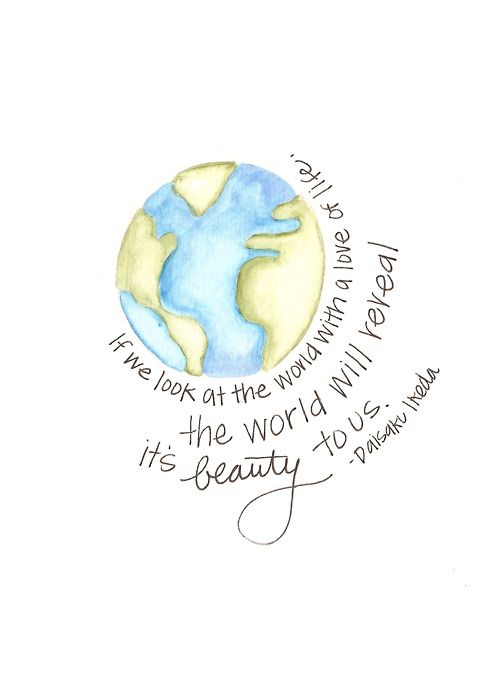 If we look at the world with a love of life,
the world will reveal
it's beauty to us.
-Daisaku Ikeda